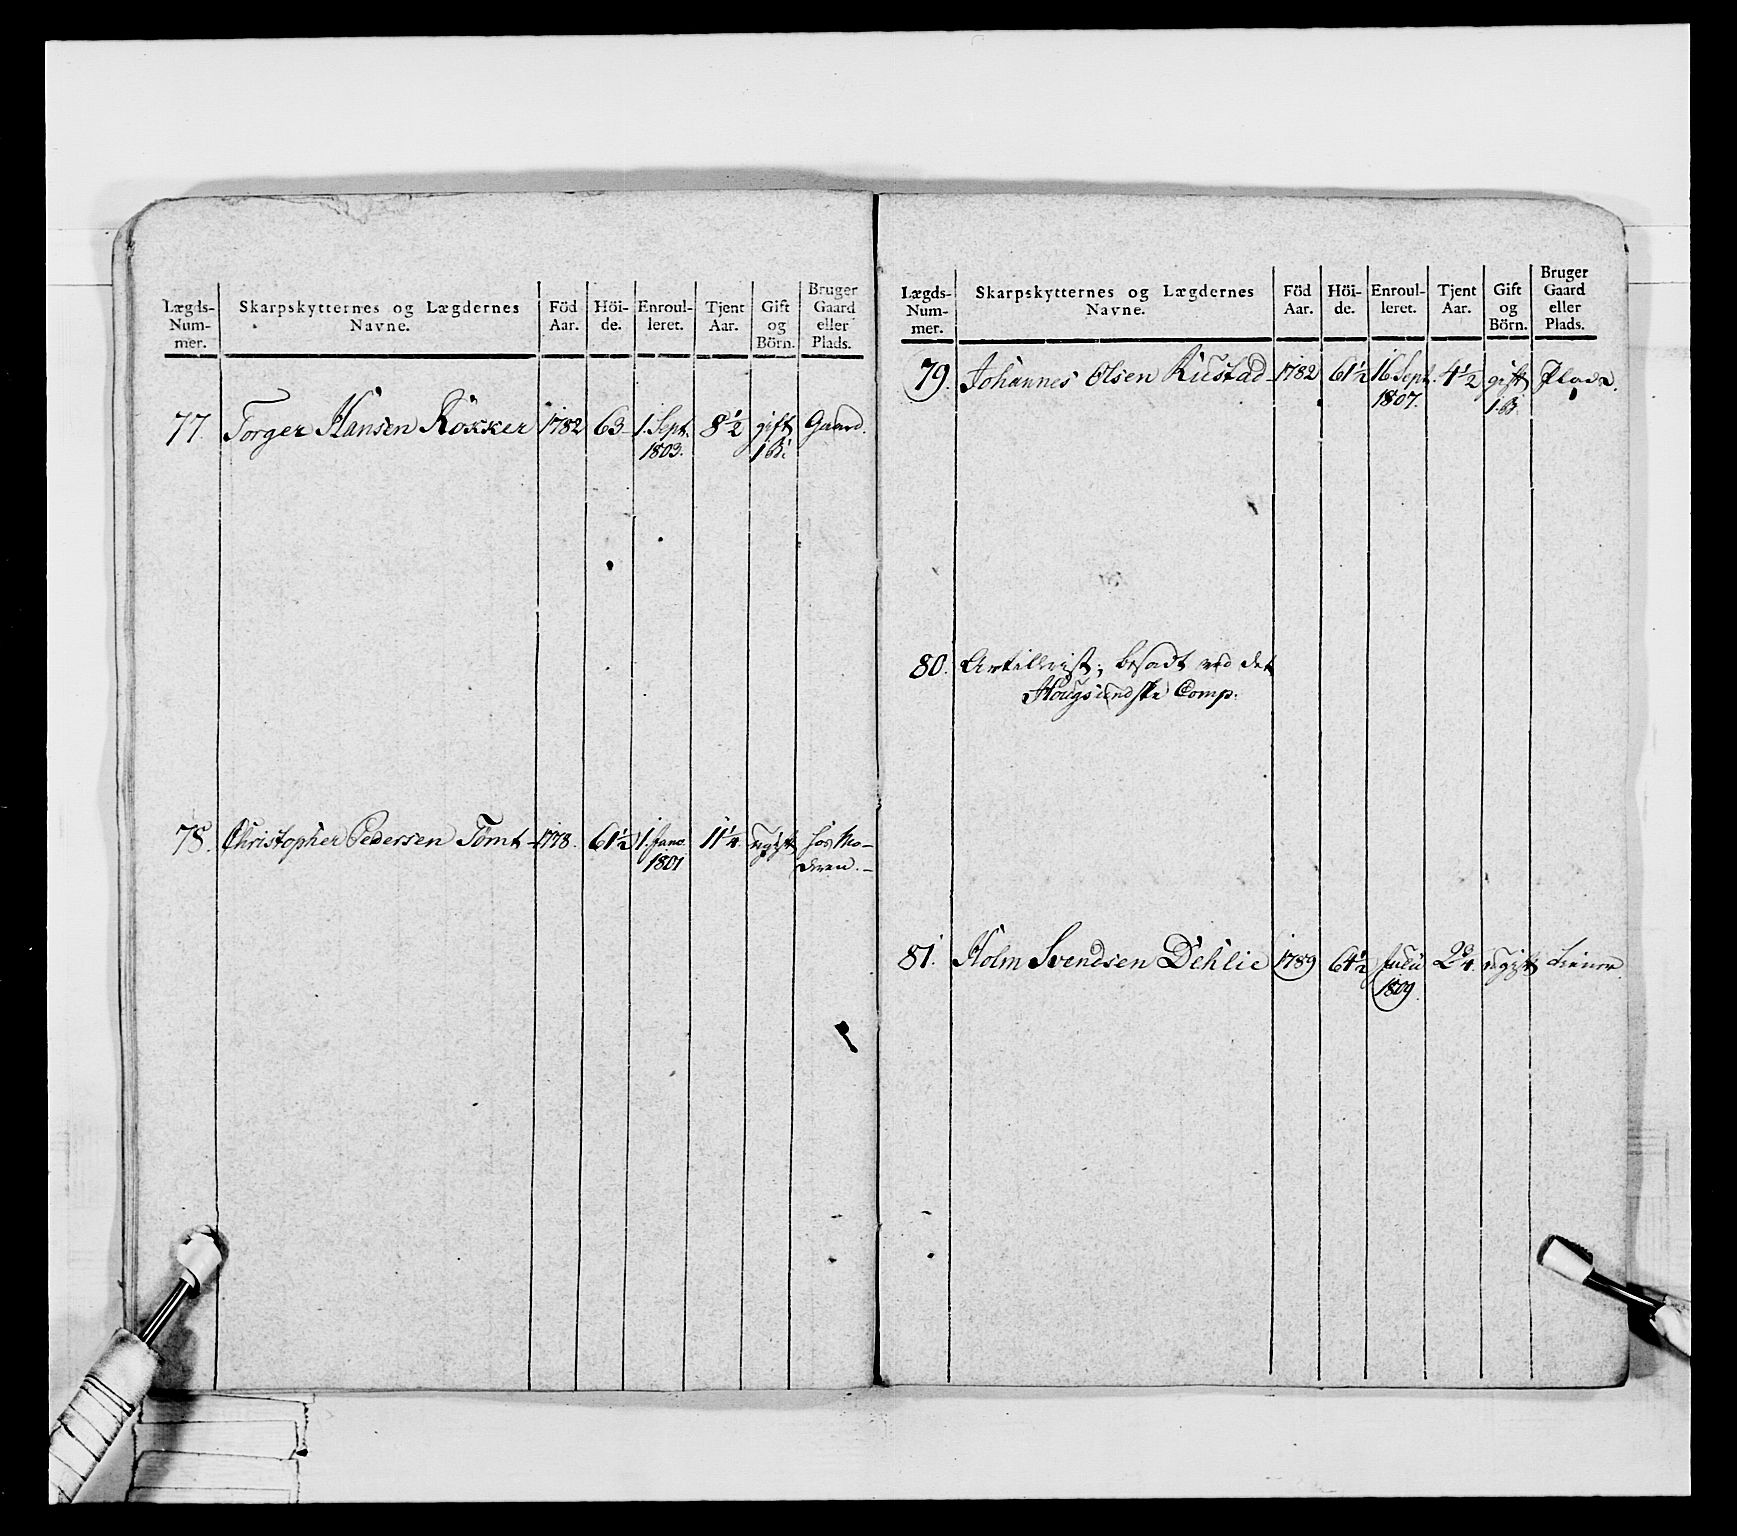 Lægds-Num-mer. Skarpskytternes og Lægdernes Navne. Föd Aar. Höi-de. Enroul-leret. Tjent Aar. Gift og Börn. Bruger Gaard eller Plads.
77. Torger Hansen Röxker 1782 63 1. Sept. 8 1/2 gift Gaard.
1803. 1 B:
78. Christopher Pedersen Tömt 1778. 61 1/2 1. Janv. 11 1/4 ugift hos Mo-
1801 deren.
Lægds-Num-mer. Skarpskytternes og Lægdernes Navne. Föd Aar. Höi-de. Enroul-leret. Tjent Aar. Gift og Börn. Bruger Gaard eller Plads.
79. Johannes Olsen Rustad 1782 61 1/2 16 Sept. 4 1/2 gift Plads.
1807. 1. B.
80. Artillerist, besadt ved det
Hougsundske Comp:
81. Holm Svendsen Dehlie 1789 64 1/2 Juli 2 3/4. ugift tiener
1809.